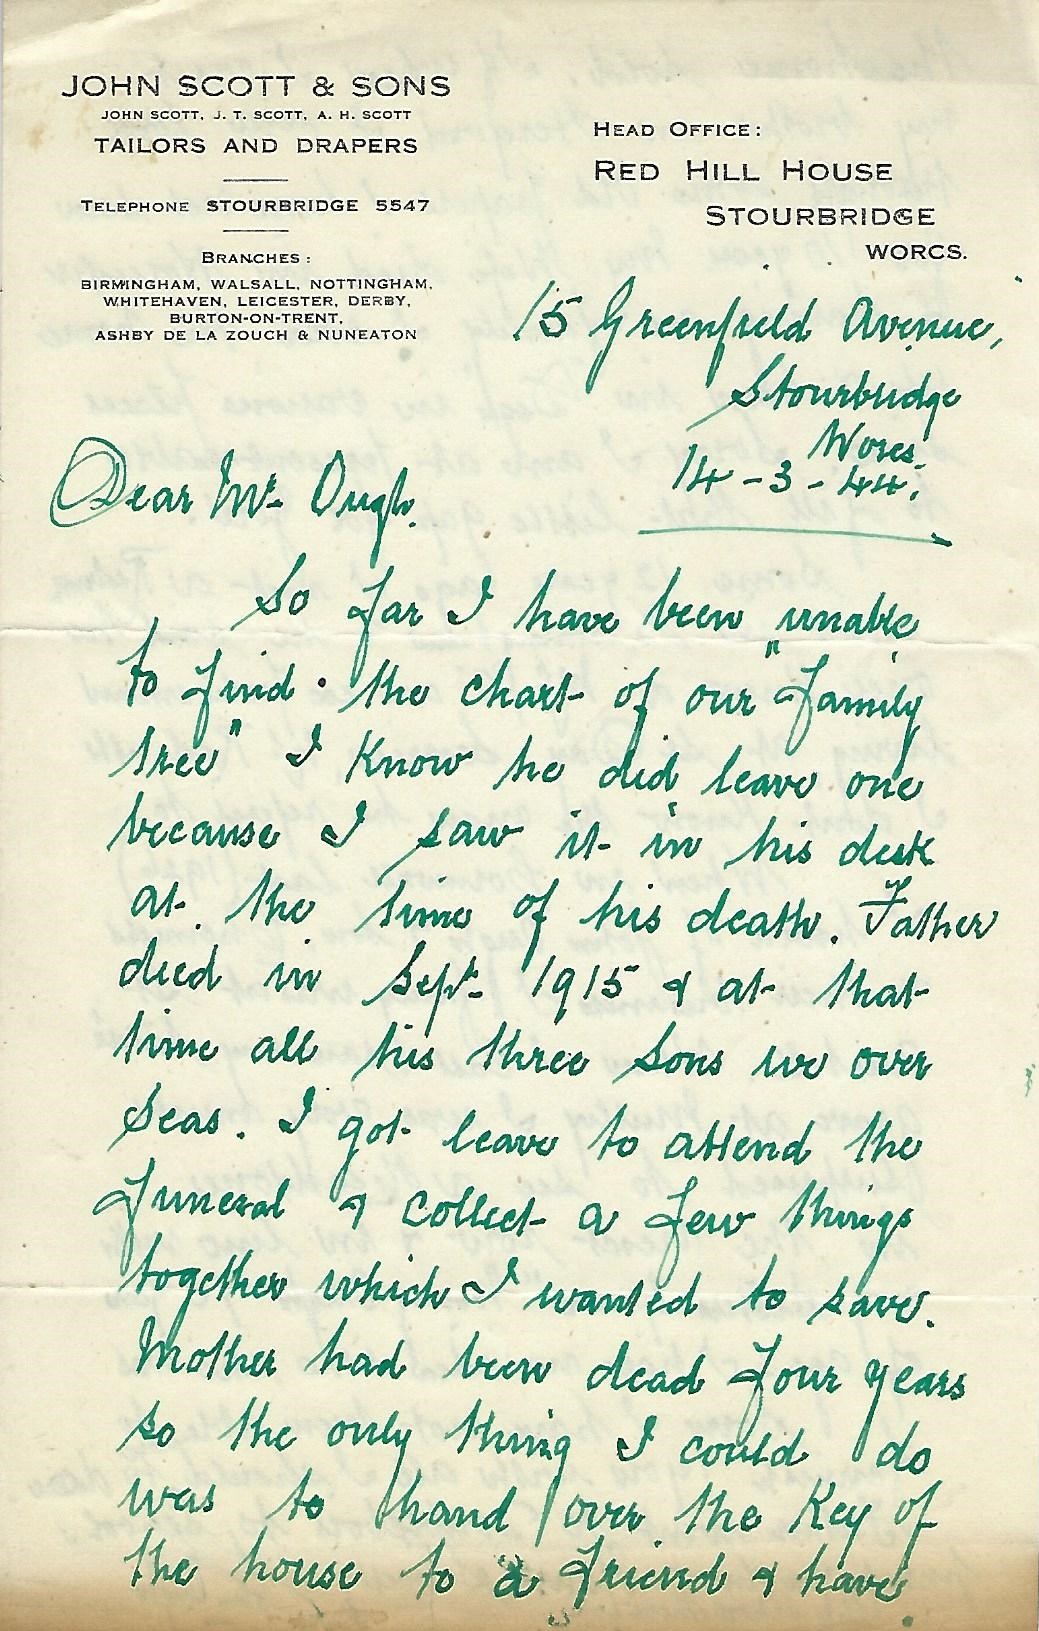 JOHN SCOTT & SONS
JOHN SCOTT, J. T. SCOTT, A. H. SCOTT
TAILORS AND DRAPERS
TELEPHONE STOURBRIDGE 5547
BRANCHES:
BIRMINGHAM, WALSALL, NOTTINGHAM,
WHITEHAVEN, LEICESTER, DERBY,
BURTON-ON-TRENT,
ASHBY DE LA ZOUCH & NUNEATON
HEAD OFFICE:
RED HILL HOUSE
STOURBRIDGE
WORCS.
15 Greenfield Avenue,
Stourbridge
Worcs.
14-3-44.
Dear Mr. Ough.
So far I have been unable
to find the chart of our "family
tree" I know he did leave one
because I saw it in his desk
at the time of his death. Father
died in Sept. 1915 & at that
time all his three sons we over
seas. I got leave to attend the
funeral & collect a few things
together which I wanted to save.
Mother had been dead four years
so the only thing I could do
was to hand over the key of
the house to a friend & have